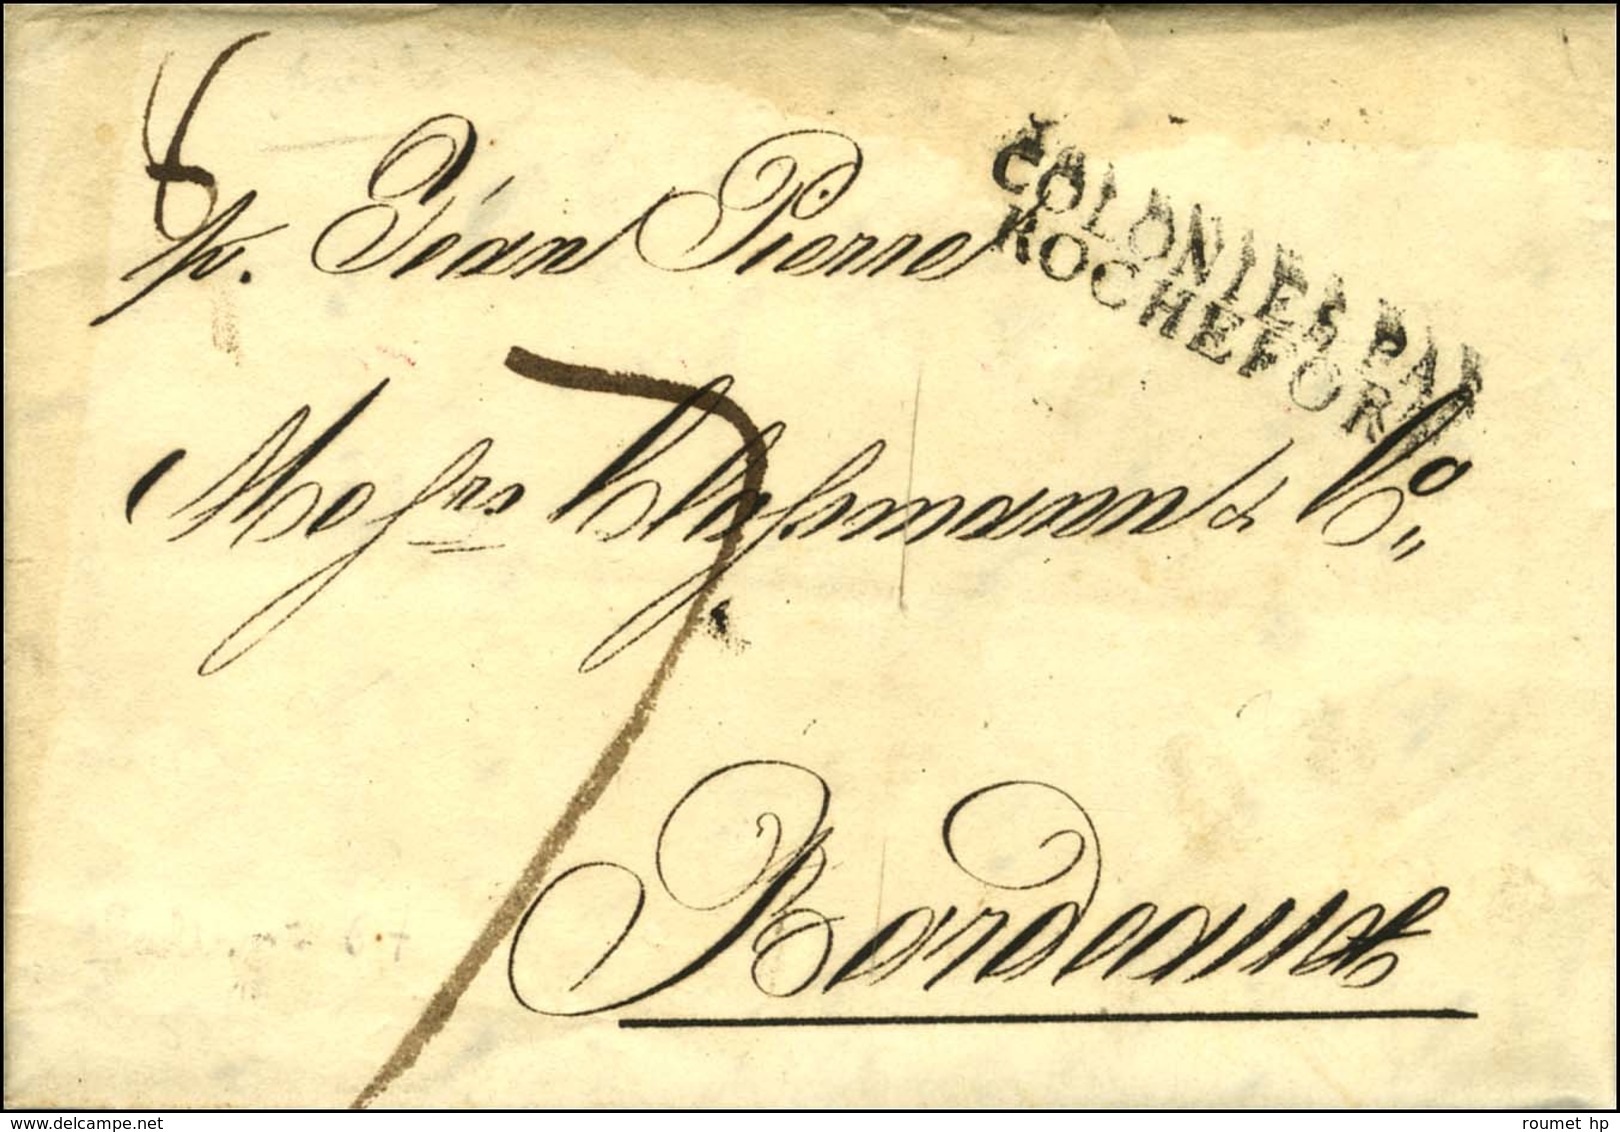 6
p. Jéan Pierre
COLONIES PAR
ROCHEFORT
Messrs Klessmann & Co
7
Bordeaux
delcampe.net
roumet hp